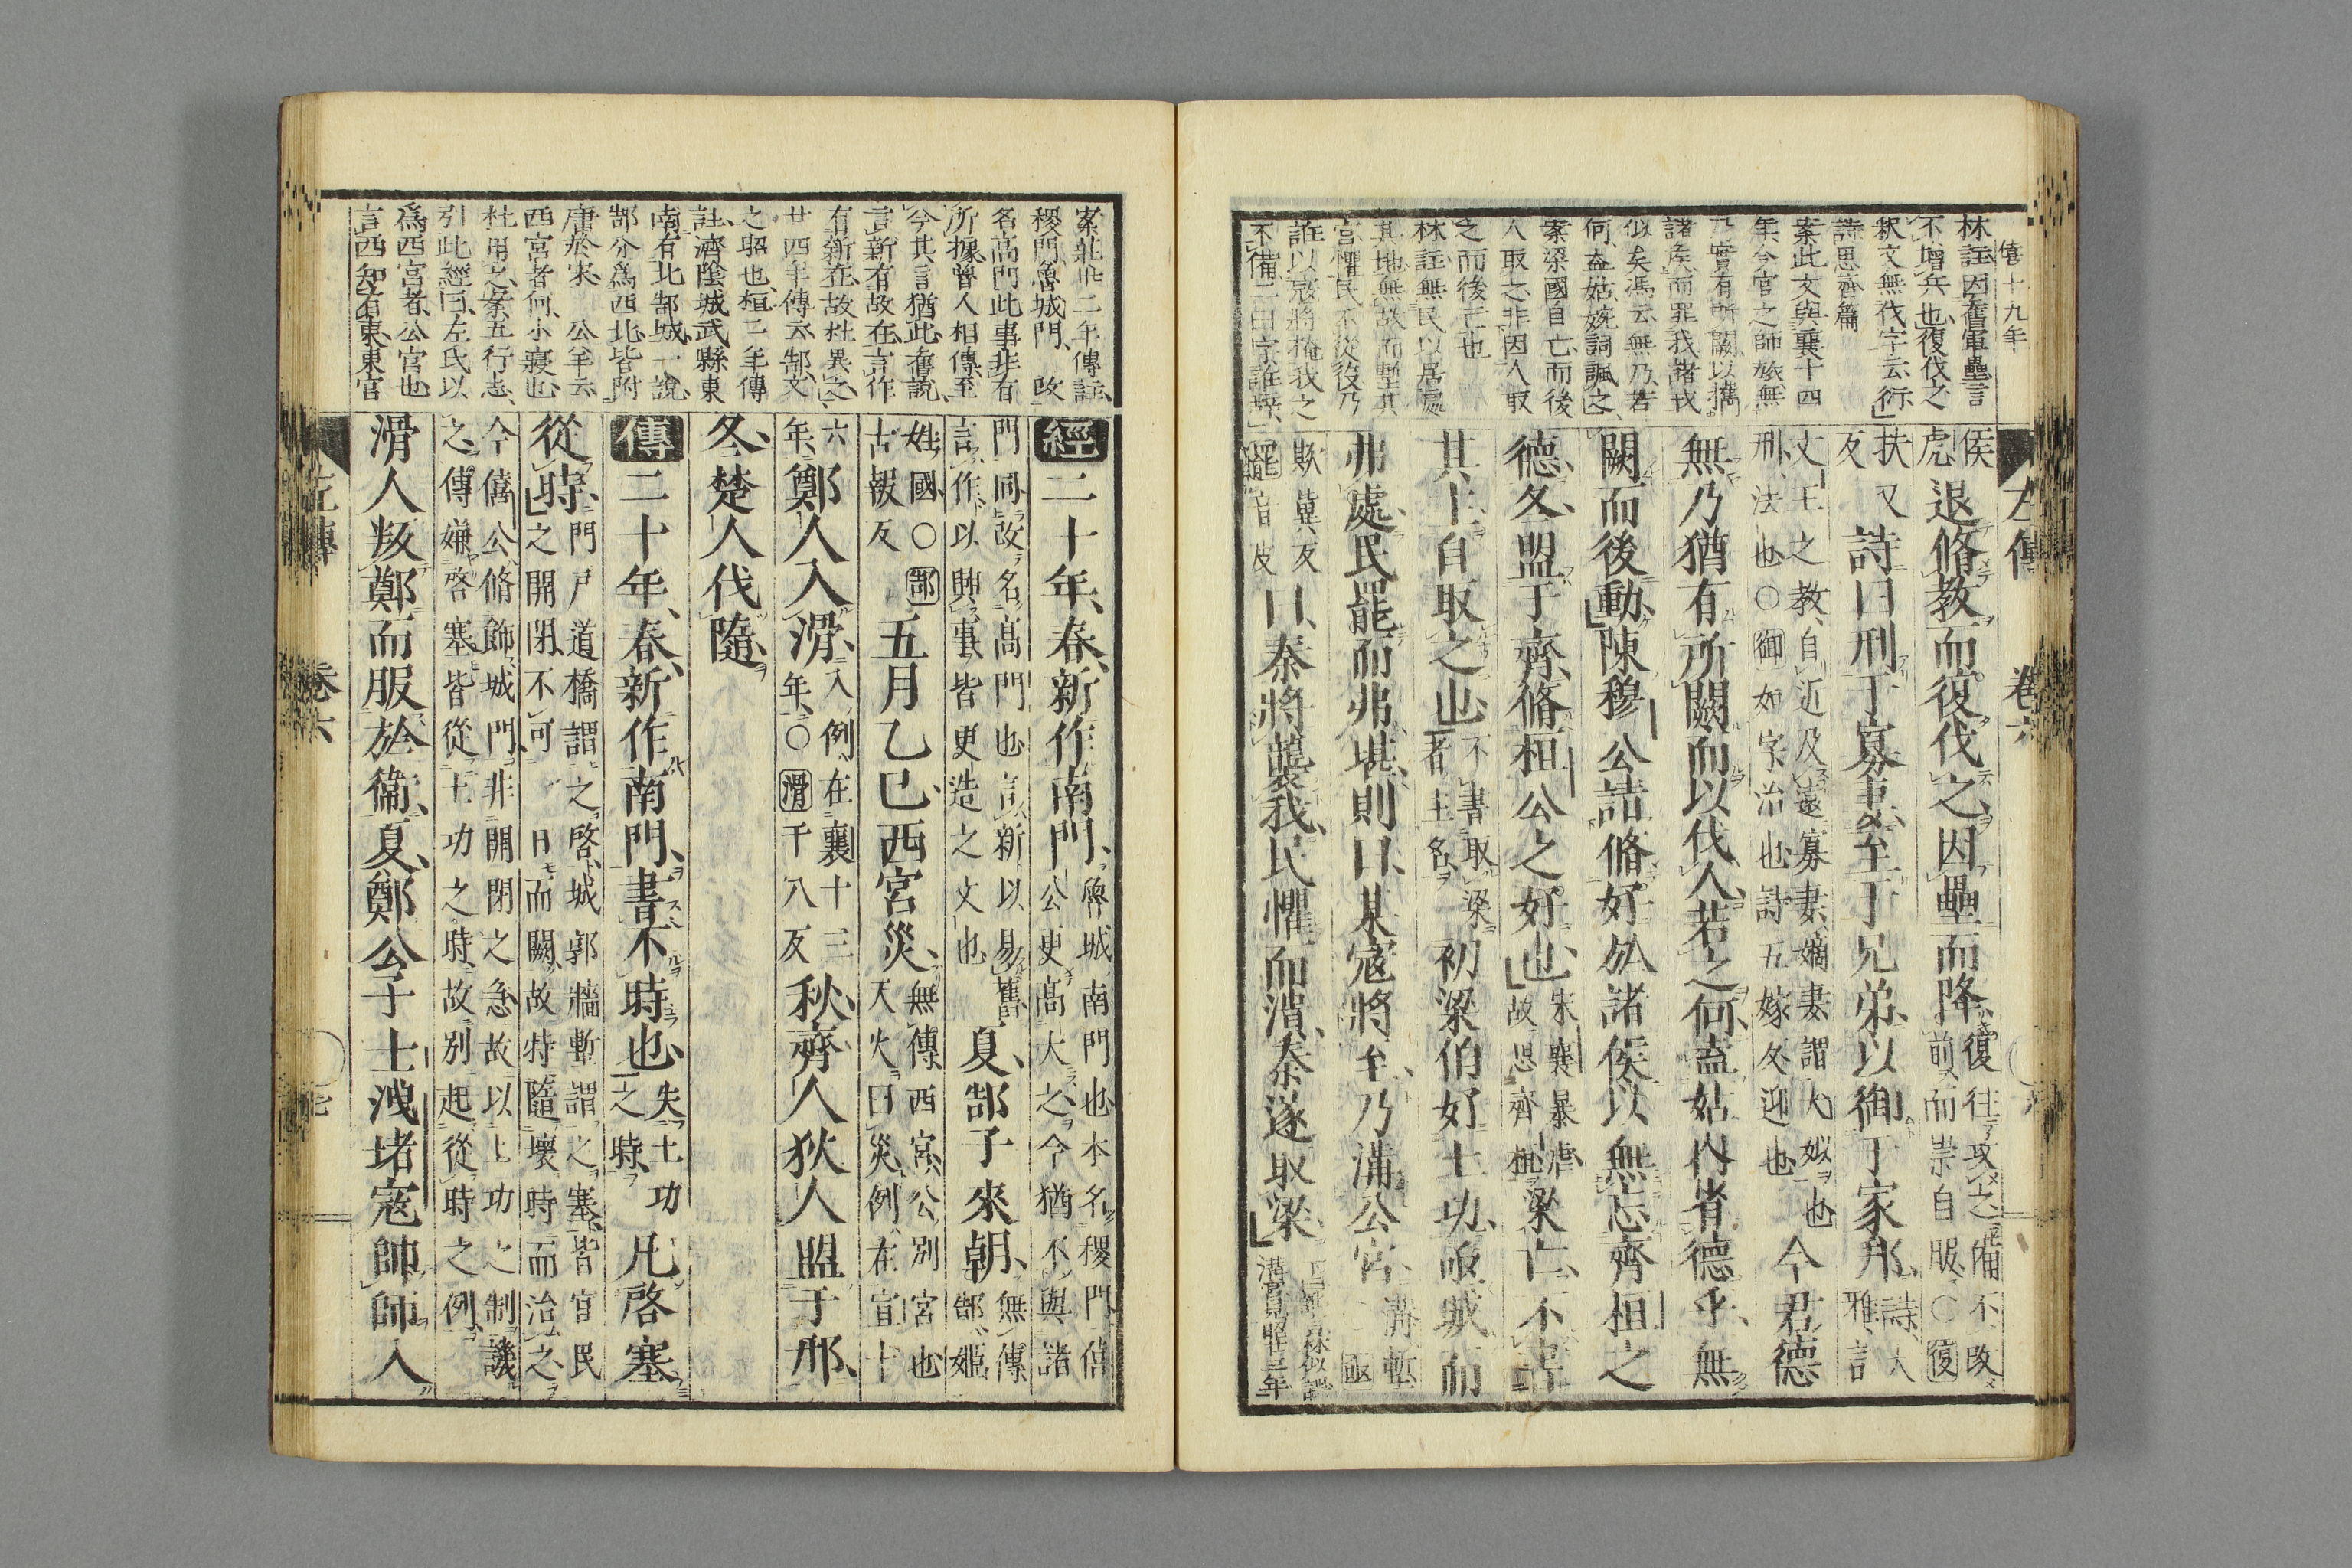 僖十九年
林註因舊軍壘言
不增兵也復伐之
釈文無伐字云行
詩思齊篇
案此文與襄十四
年今官之師旅無
乃實有所闕以攜
諸侯而罪我諸戎
似矣馮云無乃若
何盍姑婉詞諷之
案梁國自亡而後
人取之非因人取
之而後亡也
林註無民以居處
其地無故而塹其
宮懼民不從役乃
誑以寇將掩我之
不備二曰字誑辞
侯
虎
退脩教而復伐之因壘而降
復往攻之備不改
前而崇自服〇復
扶又
反
詩曰刑于寡妻至于兄弟以御于家邦
詩大
雅言
文王之教自近及遠寡妻嫡妻謂大姒也
刑法也〇御如字治也詩五嫁反迎也
今君德
無乃猶有所闕而以伐人若之何盍姑內省德乎無
闕而後動陳穆公請脩好於諸侯以無忘齊桓之
德冬盟于齊脩桓公之好也
宋襄暴虐
故思齊桓
梁亡不書
其主自取之也
不書取梁
者主名
初梁伯好土功亟城而
弗處民罷而弗堪則曰某寇將至乃溝公宮
溝塹
亟
欺冀反
罷音皮
曰秦將襲我民懼而潰秦遂取梁
左傳
卷六
案莊卅二年傳註
稷門魯城門 改
名高門此事非有
所據曾人相傳至
今其言猶此舊說
言新有故在言作
有新在故杜異之
廿四年傳云郜文
之昭也桓二年傳
註濟陰城武縣東
南有北郜城一說
郜分爲西北皆附
庸於宋 公羊云
西宮者何小寢也
杜用之案五行志
引此經曰左氏以
爲西宮者公宮也
言西知有東東宮
經二十年春新作南門
魯城南門也本名稷門僖
公更高大之今猶不與諸
門同改名高門也言新以易舊
言作以興事皆更造之文也
夏郜子來朝
無傳
郜姬
姓國〇郜
古報反
五月乙巳西宮災
無傳西宮公別宮也
天火曰災例在宣十
六
年
鄭人入滑
入例在襄十三
年〇滑干八反
秋齊人狄人盟于邢
冬楚人伐隨
傳二十年春新作南門書不時也
失土功
之時
凡啓塞
從時
門戶道橋謂之啓城郭牆塹謂之塞皆官民
之開閉不可一日而闕故特隨壞時而治之
今僖公脩飾城門非開閉之急故以土功之制譏
之傳嫌啓塞皆從土功之時故別起從時之例
滑人叛鄭而服於衛夏鄭公子士洩堵寇帥師入
左傳
卷六